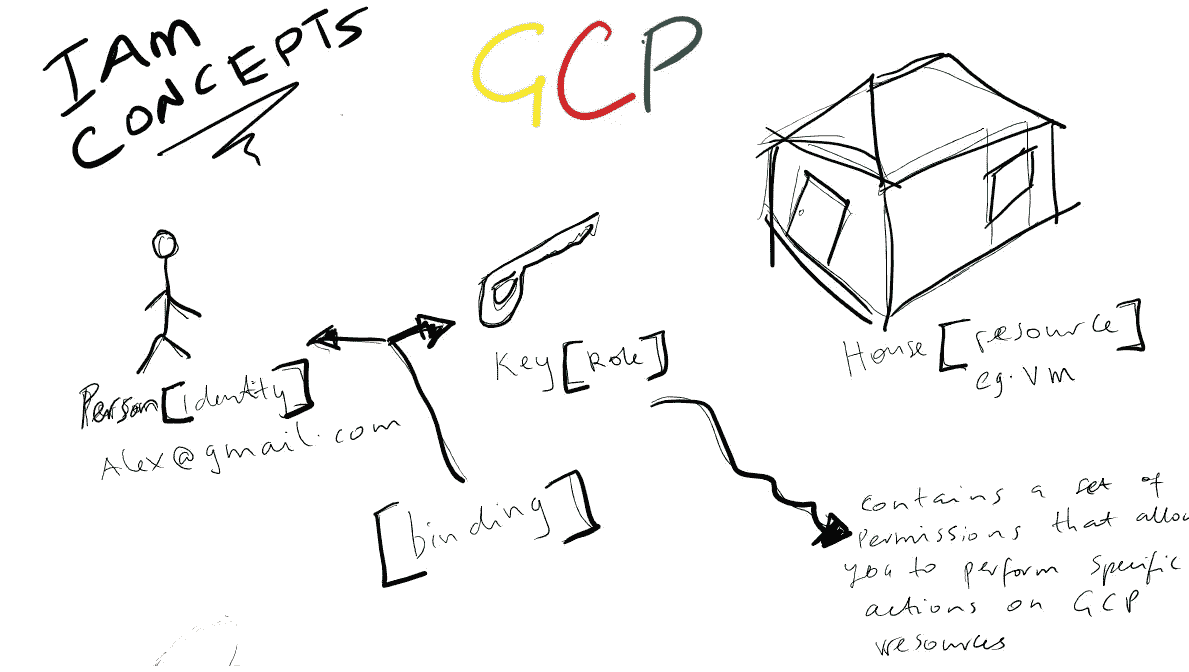 IAM
CONCEPTS
GCP
Person [identity]
Alex@gmail.com
Key [Role]
House [resource]
eg. VM
[binding]
contains a set of
permissions that allow
you to perform specific
actions on GCP
resources